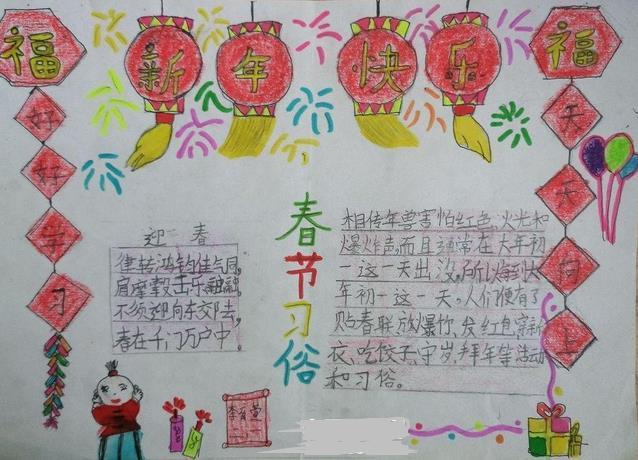 福
新年快乐
福
好好学习
天天向上
春节习俗
迎春
律转鸿钧佳气同,
肩摩毂击乐融融。
不须迎向东郊去,
春在千门万户中。
相传年兽害怕红色,火光和
爆炸声,而且通常在大年初
一这一天出没,所以每到大
年初一这一天,人们便有了
贴春联,放爆竹、发红包,穿新
衣、吃饺子、守岁、拜年等活动
和习俗。